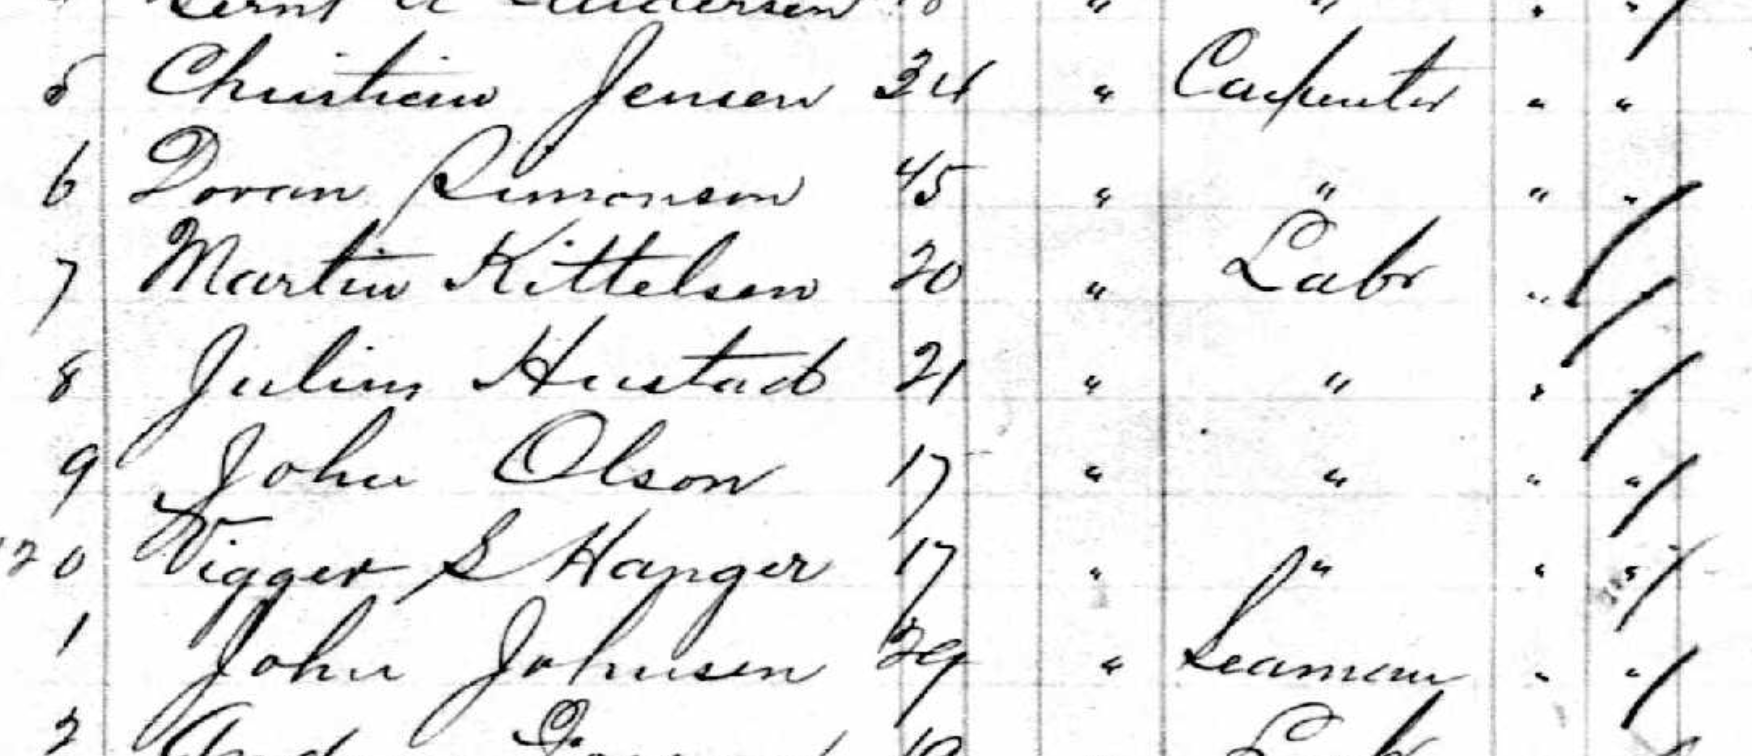 Andersen 18 " " " "
5 Christian Jensen 34 " Carpenter " "
6 Dovan Simonson 45 " " " "
7 Martin Kittelsen 20 " Labr " "
8 Julius Hustad 21 " " " "
9 John Olson 17 " " " "
20 Vigger S Hanger 17 " " " "
1 John Johnsen 29 " Seaman " "
2